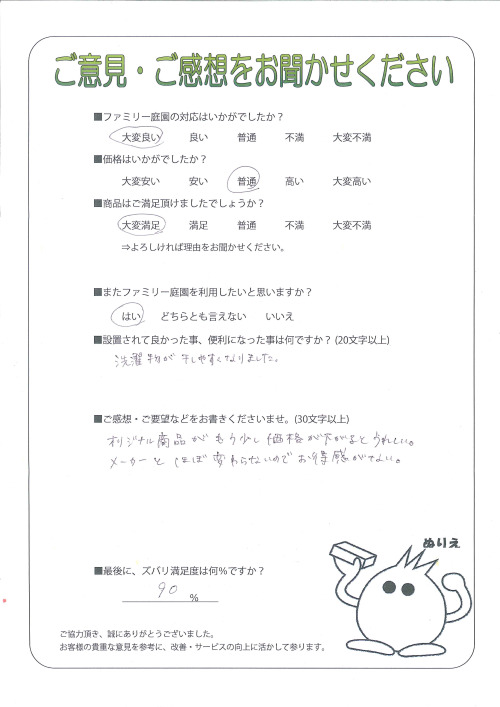 ご意見・ご感想をお聞かせください
■ファミリー庭園の対応はいかがでしたか？
大変良い 良い 普通 不満 大変不満
■価格はいかがでしたか？
大変安い 安い 普通 高い 大変高い
■商品はご満足頂けましたでしょうか？
大変満足 満足 普通 不満 大変不満
⇒よろしければ理由をお聞かせください。
■またファミリー庭園を利用したいと思いますか？
はい どちらとも言えない いいえ
■設置されて良かった事、便利になった事は何ですか？(20文字以上)
洗濯物が干しやすくなりました。
■ご感想・ご要望などをお書きくださいませ。(30文字以上)
オリジナル商品がもう少し価格が下がるとうれしい。
メーカーとほぼ変わらないのでお得感がでない。
ぬりえ
■最後に、ズバリ満足度は何％ですか？
90 %
ご協力頂き、誠にありがとうございました。
お客様の貴重な意見を参考に、改善・サービスの向上に活かして参ります。